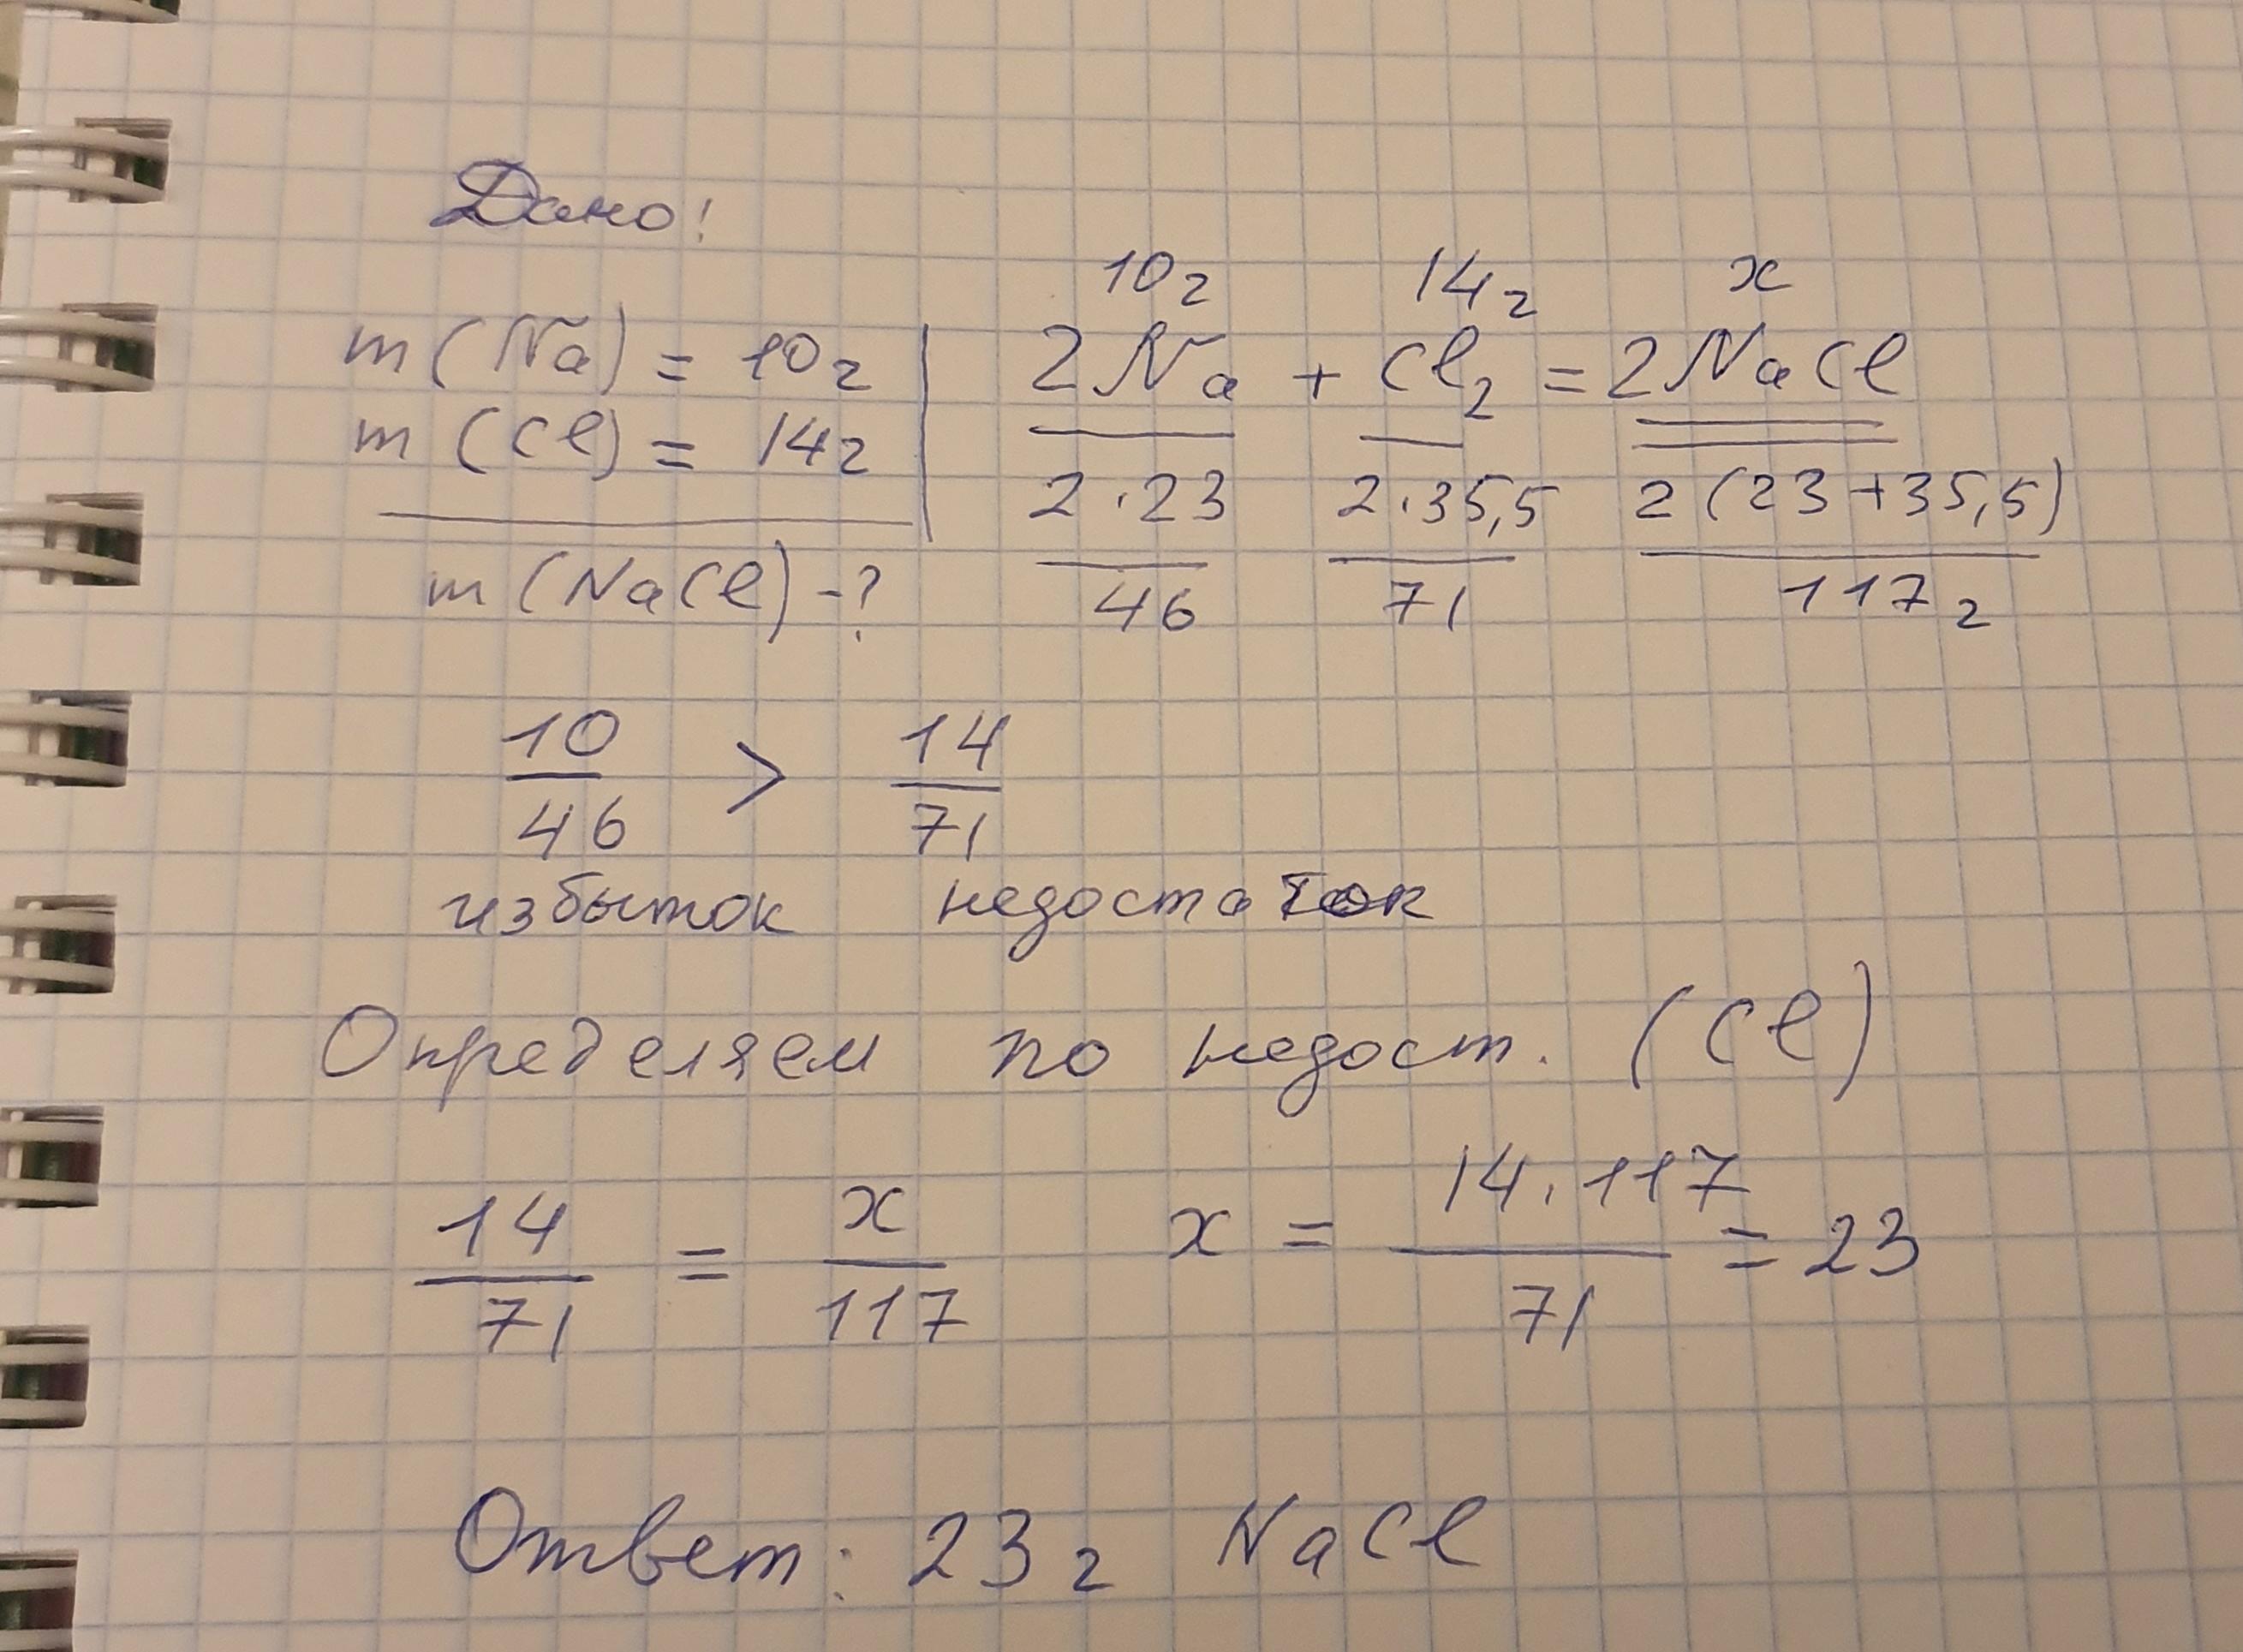 Дано!
10г 14г x
m(Na) = 10г 2Na + Cl₂ = 2NaCl
m(Cl) = 14г 2·23 2·35,5 2(23+35,5)
m(NaCl) -? 46 71 117г
10/46 > 14/71
избыток недостаток
Определяем по недост. (Cl)
14/71 = x/117 x = 14·117/71 = 23
Ответ: 23г NaCl